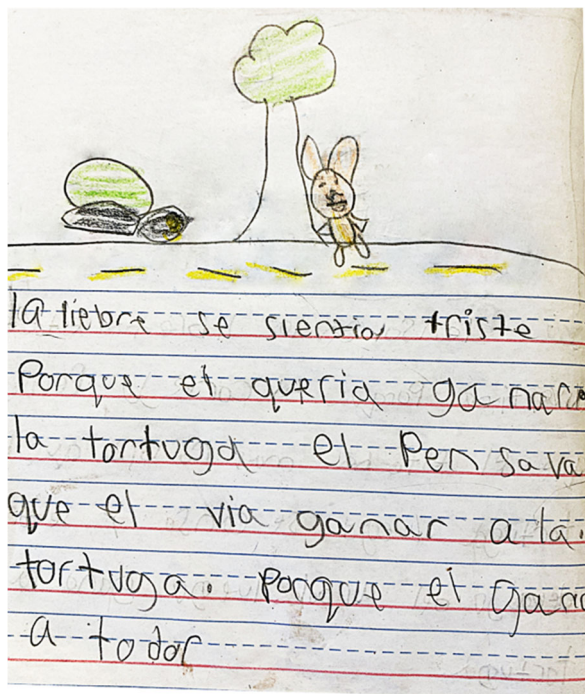 la liebre se sientio triste
Porque el queria ganar
la tortuga el Pensava
que el via ganar a la.
tortuga. Porque el gan
a todor